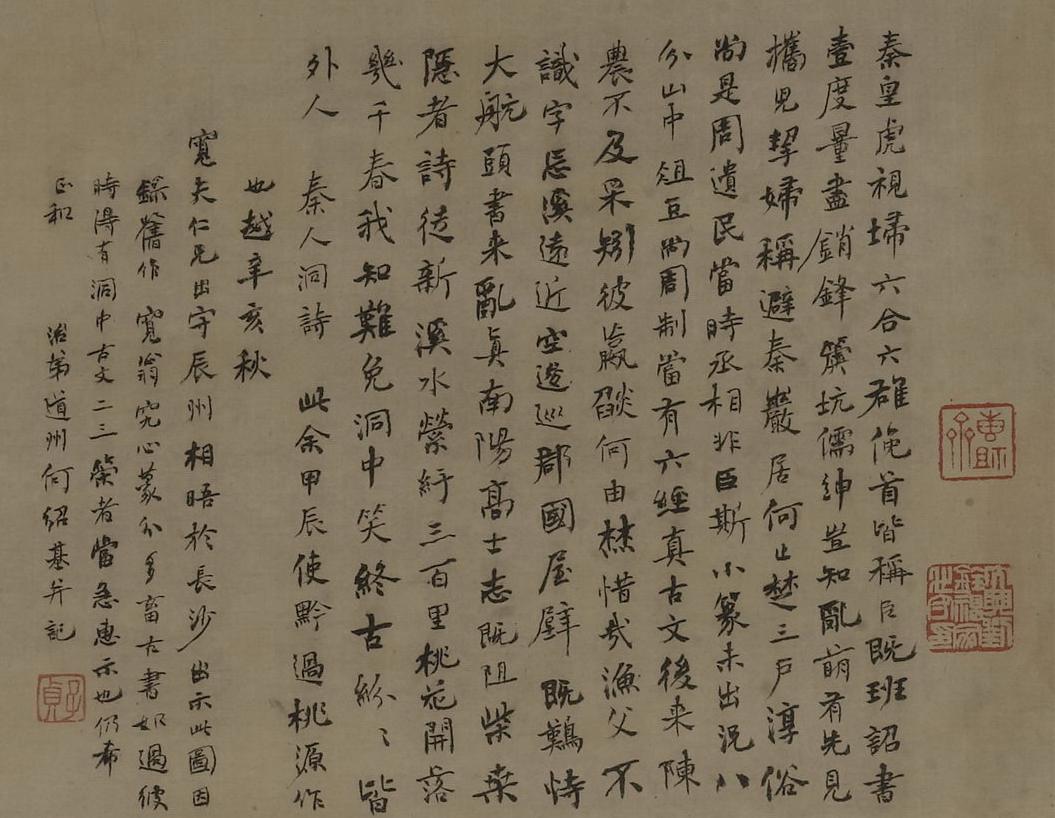 秦皇虎視埽六合六雄俛首皆稱臣既班詔書
壹度量盡銷鋒簴坑儒紳豈知亂萌有先見
攜兒挈婦稱避秦巖居何止楚三户淳俗
尚是周遺民當時丞相非臣斯小篆未出況八
分山中俎豆尚周制當有六經真古文後來陳
農不及采矧彼嬴燄何由焚惜哉漁父不
識字忘溪遠近空造巡郡國屋壁既難恃
大航頭書来亂真南陽高士志既阻柴桒
隱者詩徒新溪水縈紆三百里桃花開落
幾千春我知難免洞中笑終古紛〻皆
外人 秦人洞詩 此余甲辰使黔過桃源作
也越辛亥秋
寬夫仁兄出守辰州相晤於長沙出示此圖因
錄舊作 寬翁究心篆分多畜古書如過彼
時得有洞中古文二三策者當急惠示也仍希
正和
治弟道州何紹基并記
子貞